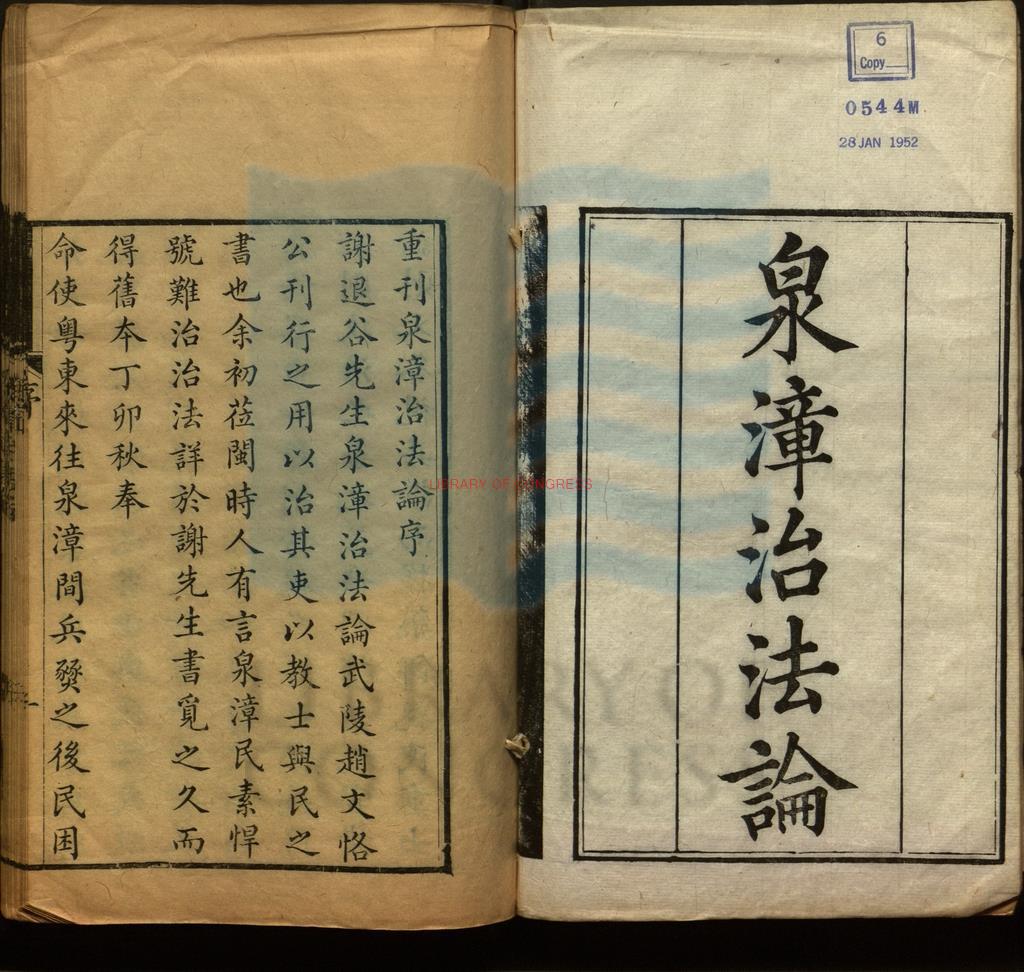 6
Copy
0544M
28 JAN 1952
泉漳治法論
重刊泉漳治法論序
謝退谷先生泉漳治法論武陵趙文恪
公刊行之用以治其吏以教士與民之
書也余初莅閩時人有言泉漳民素悍
號難治治法詳於謝先生書覓之久而
得舊本丁卯秋奉
命使粵東來往泉漳間兵燹之後民困
序
一
LIBRARY OF CONGRESS